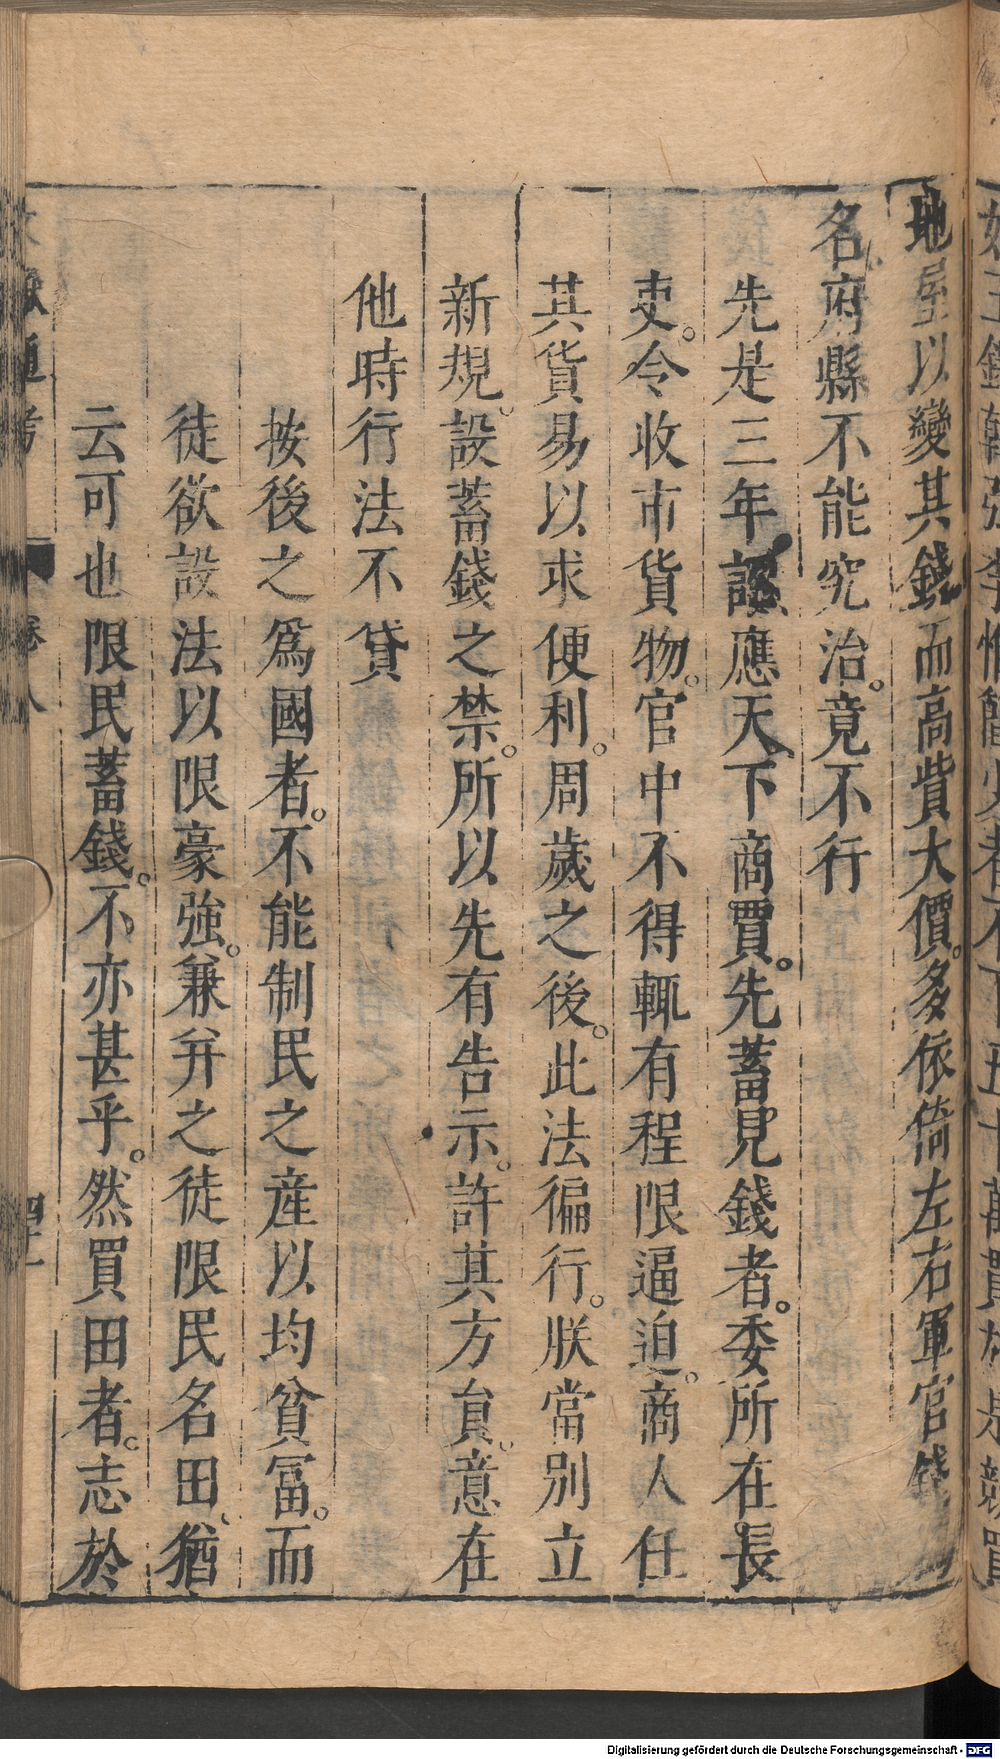 地屋以變其錢而高貲大價。多依倚左右軍官錢
名府縣不能究治。竟不行
先是三年詔應天下商賈。先蓄見錢者。委所在長
吏。令收市貨物。官中不得輒有程限逼迫。商人任
其貨易以求便利。周歲之後。此法徧行。朕當別立
新規。設蓄錢之禁。所以先有告示。許其方員。意在
他時行法不貸
按後之爲國者。不能制民之産以均貧冨。而
徒欲設法以限豪強。兼并之徒限民名田。猶
云可也限民蓄錢。不亦甚乎。然買田者。志於
獻通考
卷八
Digitalisierung gefördert durch die Deutsche Forschungsgemeinschaft - DFG